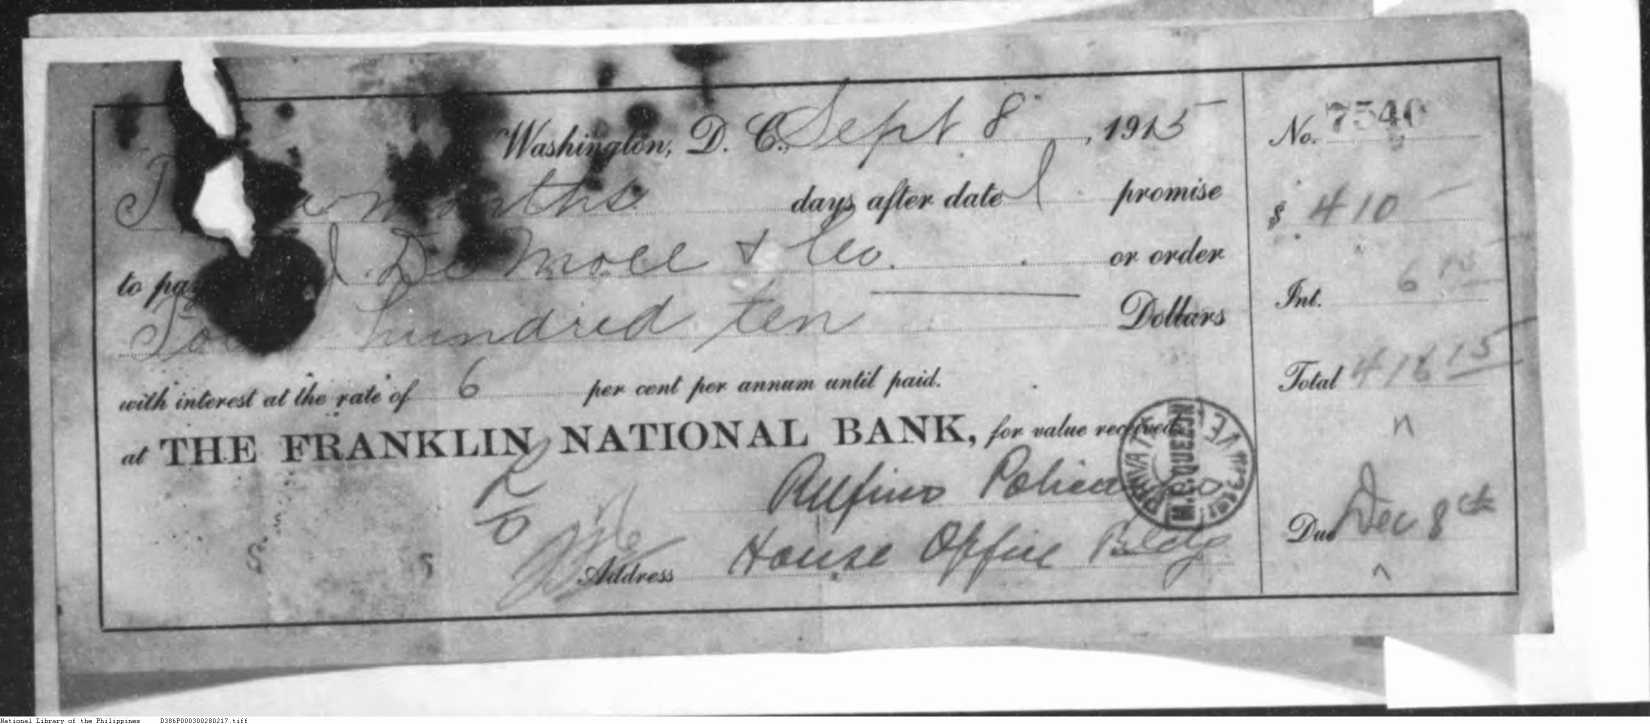 Washington, D. C., Sept 8, 1915
No. 7540
months days after date I promise
$ 410
to pay De Moll & Co. or order
Int. 6 15
hundred ten Dollars
Total 416 15
with interest at the rate of 6 per cent per annum until paid.
at THE FRANKLIN NATIONAL BANK, for value received.
Rufino
Due Dec 8th
Address House Office Bldg
National Library of the Philippines D386P000300280217.tiff